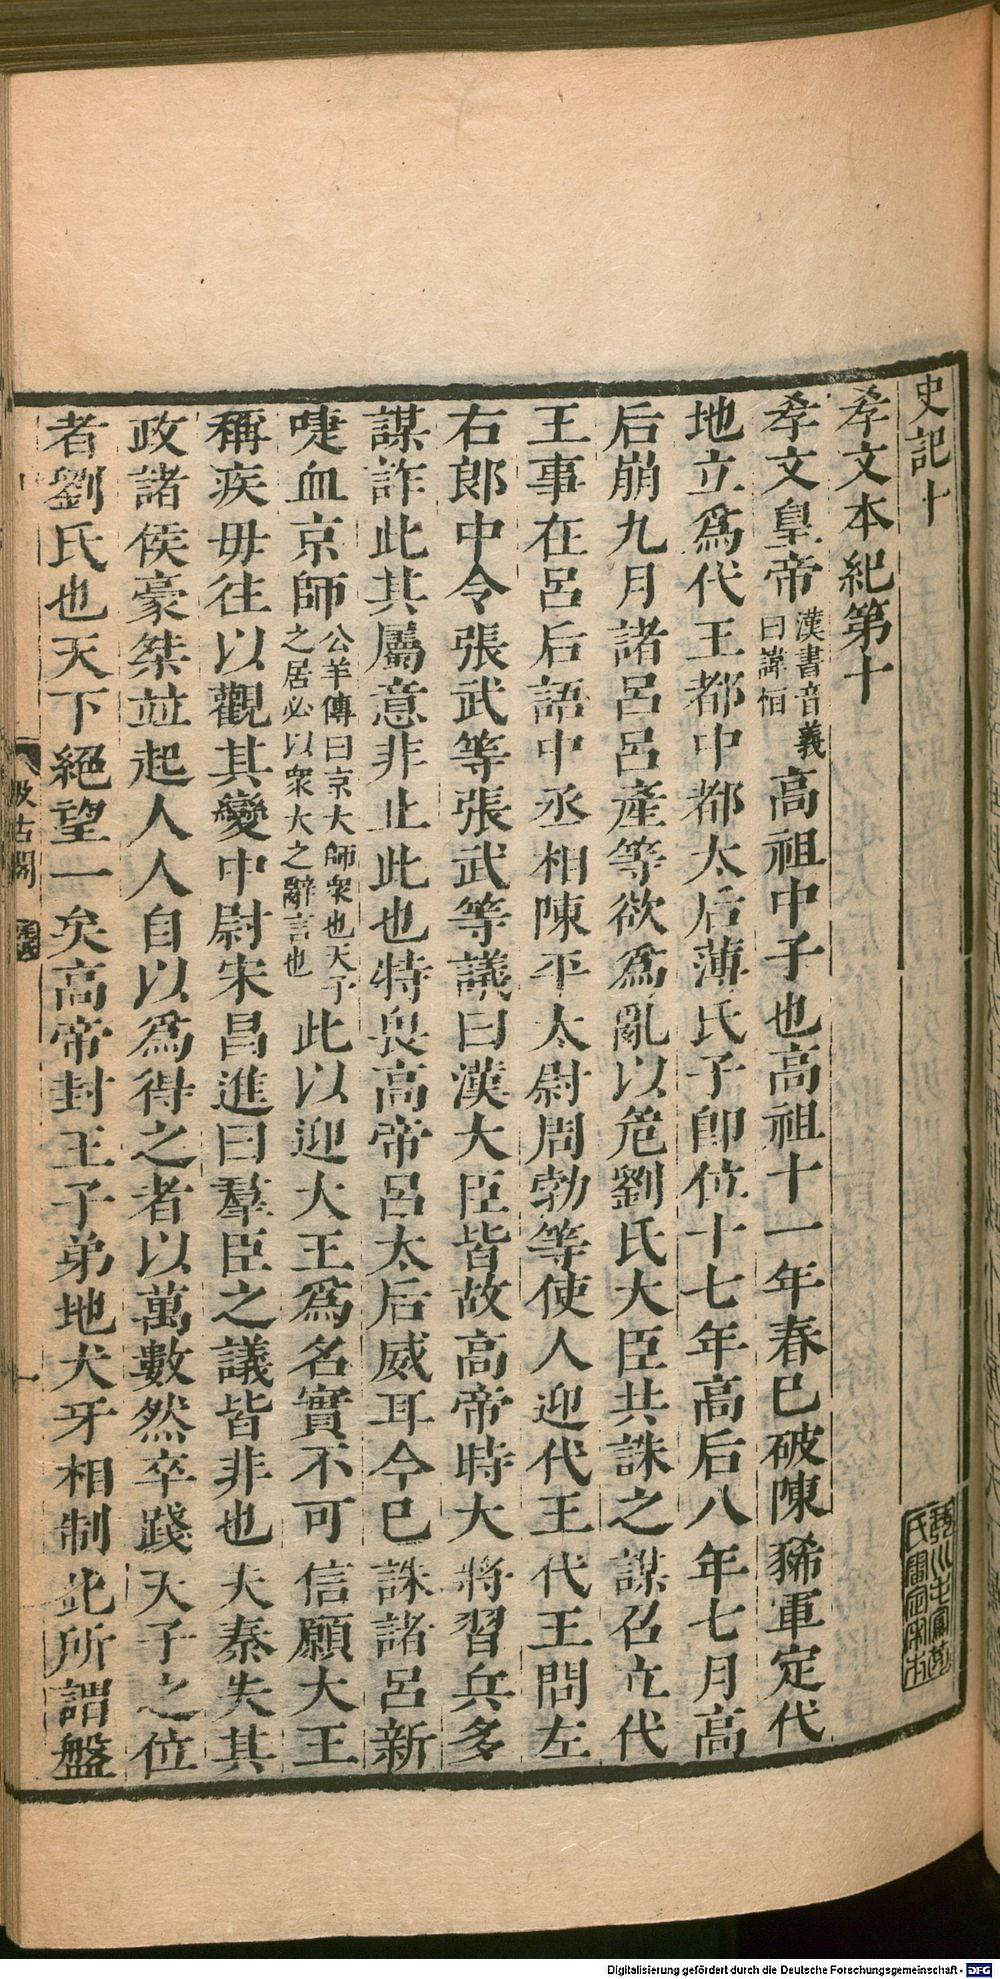 史記十
孝文本紀第十
孝文皇帝漢書音義曰諱恒高祖中子也高祖十一年春已破陳豨軍定代
地立爲代王都中都太后薄氏子卽位十七年高后八年七月高
后崩九月諸呂呂產等欲爲亂以危劉氏大臣共誅之謀召立代
王事在呂后語中丞相陳平太尉周勃等使人迎代王代王問左
右郎中令張武等張武等議曰漢大臣皆故高帝時大將習兵多
謀詐此其屬意非止此也特畏高帝呂太后威耳今已誅諸呂新
啑血京師公羊傳曰京大師衆也天子之居必以衆大之辭言也此以迎大王爲名實不可信願大王
稱疾毋往以觀其變中尉宋昌進曰羣臣之議皆非也夫秦失其
政諸侯豪桀竝起人人自以爲得之者以萬數然卒踐天子之位
者劉氏也天下絕望一矣高帝封王子弟地犬牙相制此所謂盤
汲古閣
一
Digitalisierung gefördert durch die Deutsche Forschungsgemeinschaft - DFG